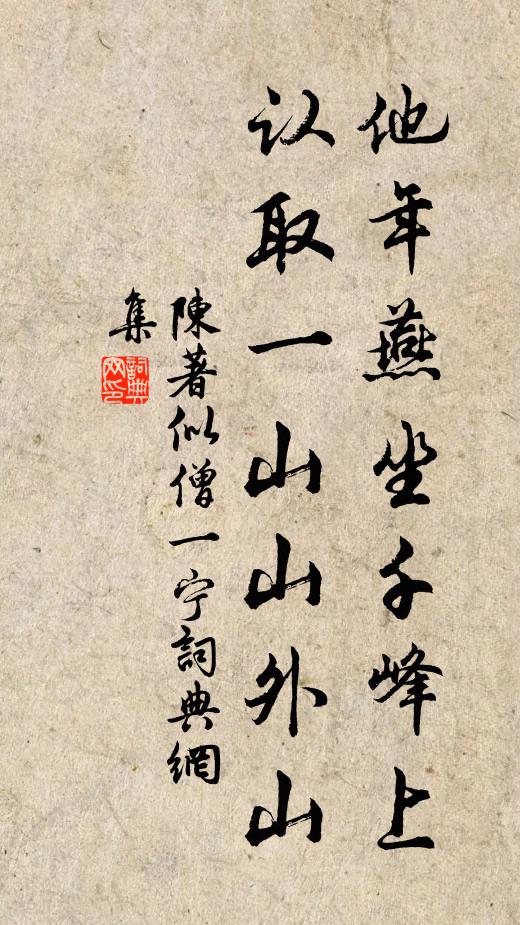 他年燕坐千峰上
认取一山山外山
陳著似僧一宁詞典網
集
詞典网印